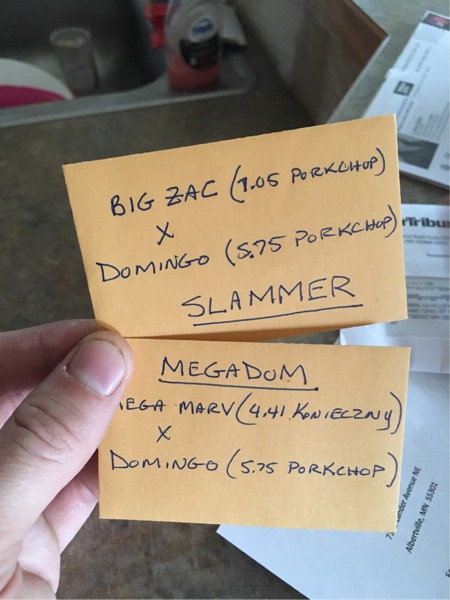 BIG ZAC (7.05 PORKCHOP)
X
DOMINGO (5.75 PORKCHOP)
SLAMMER
MEGADOM
MEGA MARV (4.41 KONIECZNY)
X
DOMINGO (5.75 PORKCHOP)
rTribu
Avenue NE
Albertville, MN 55301